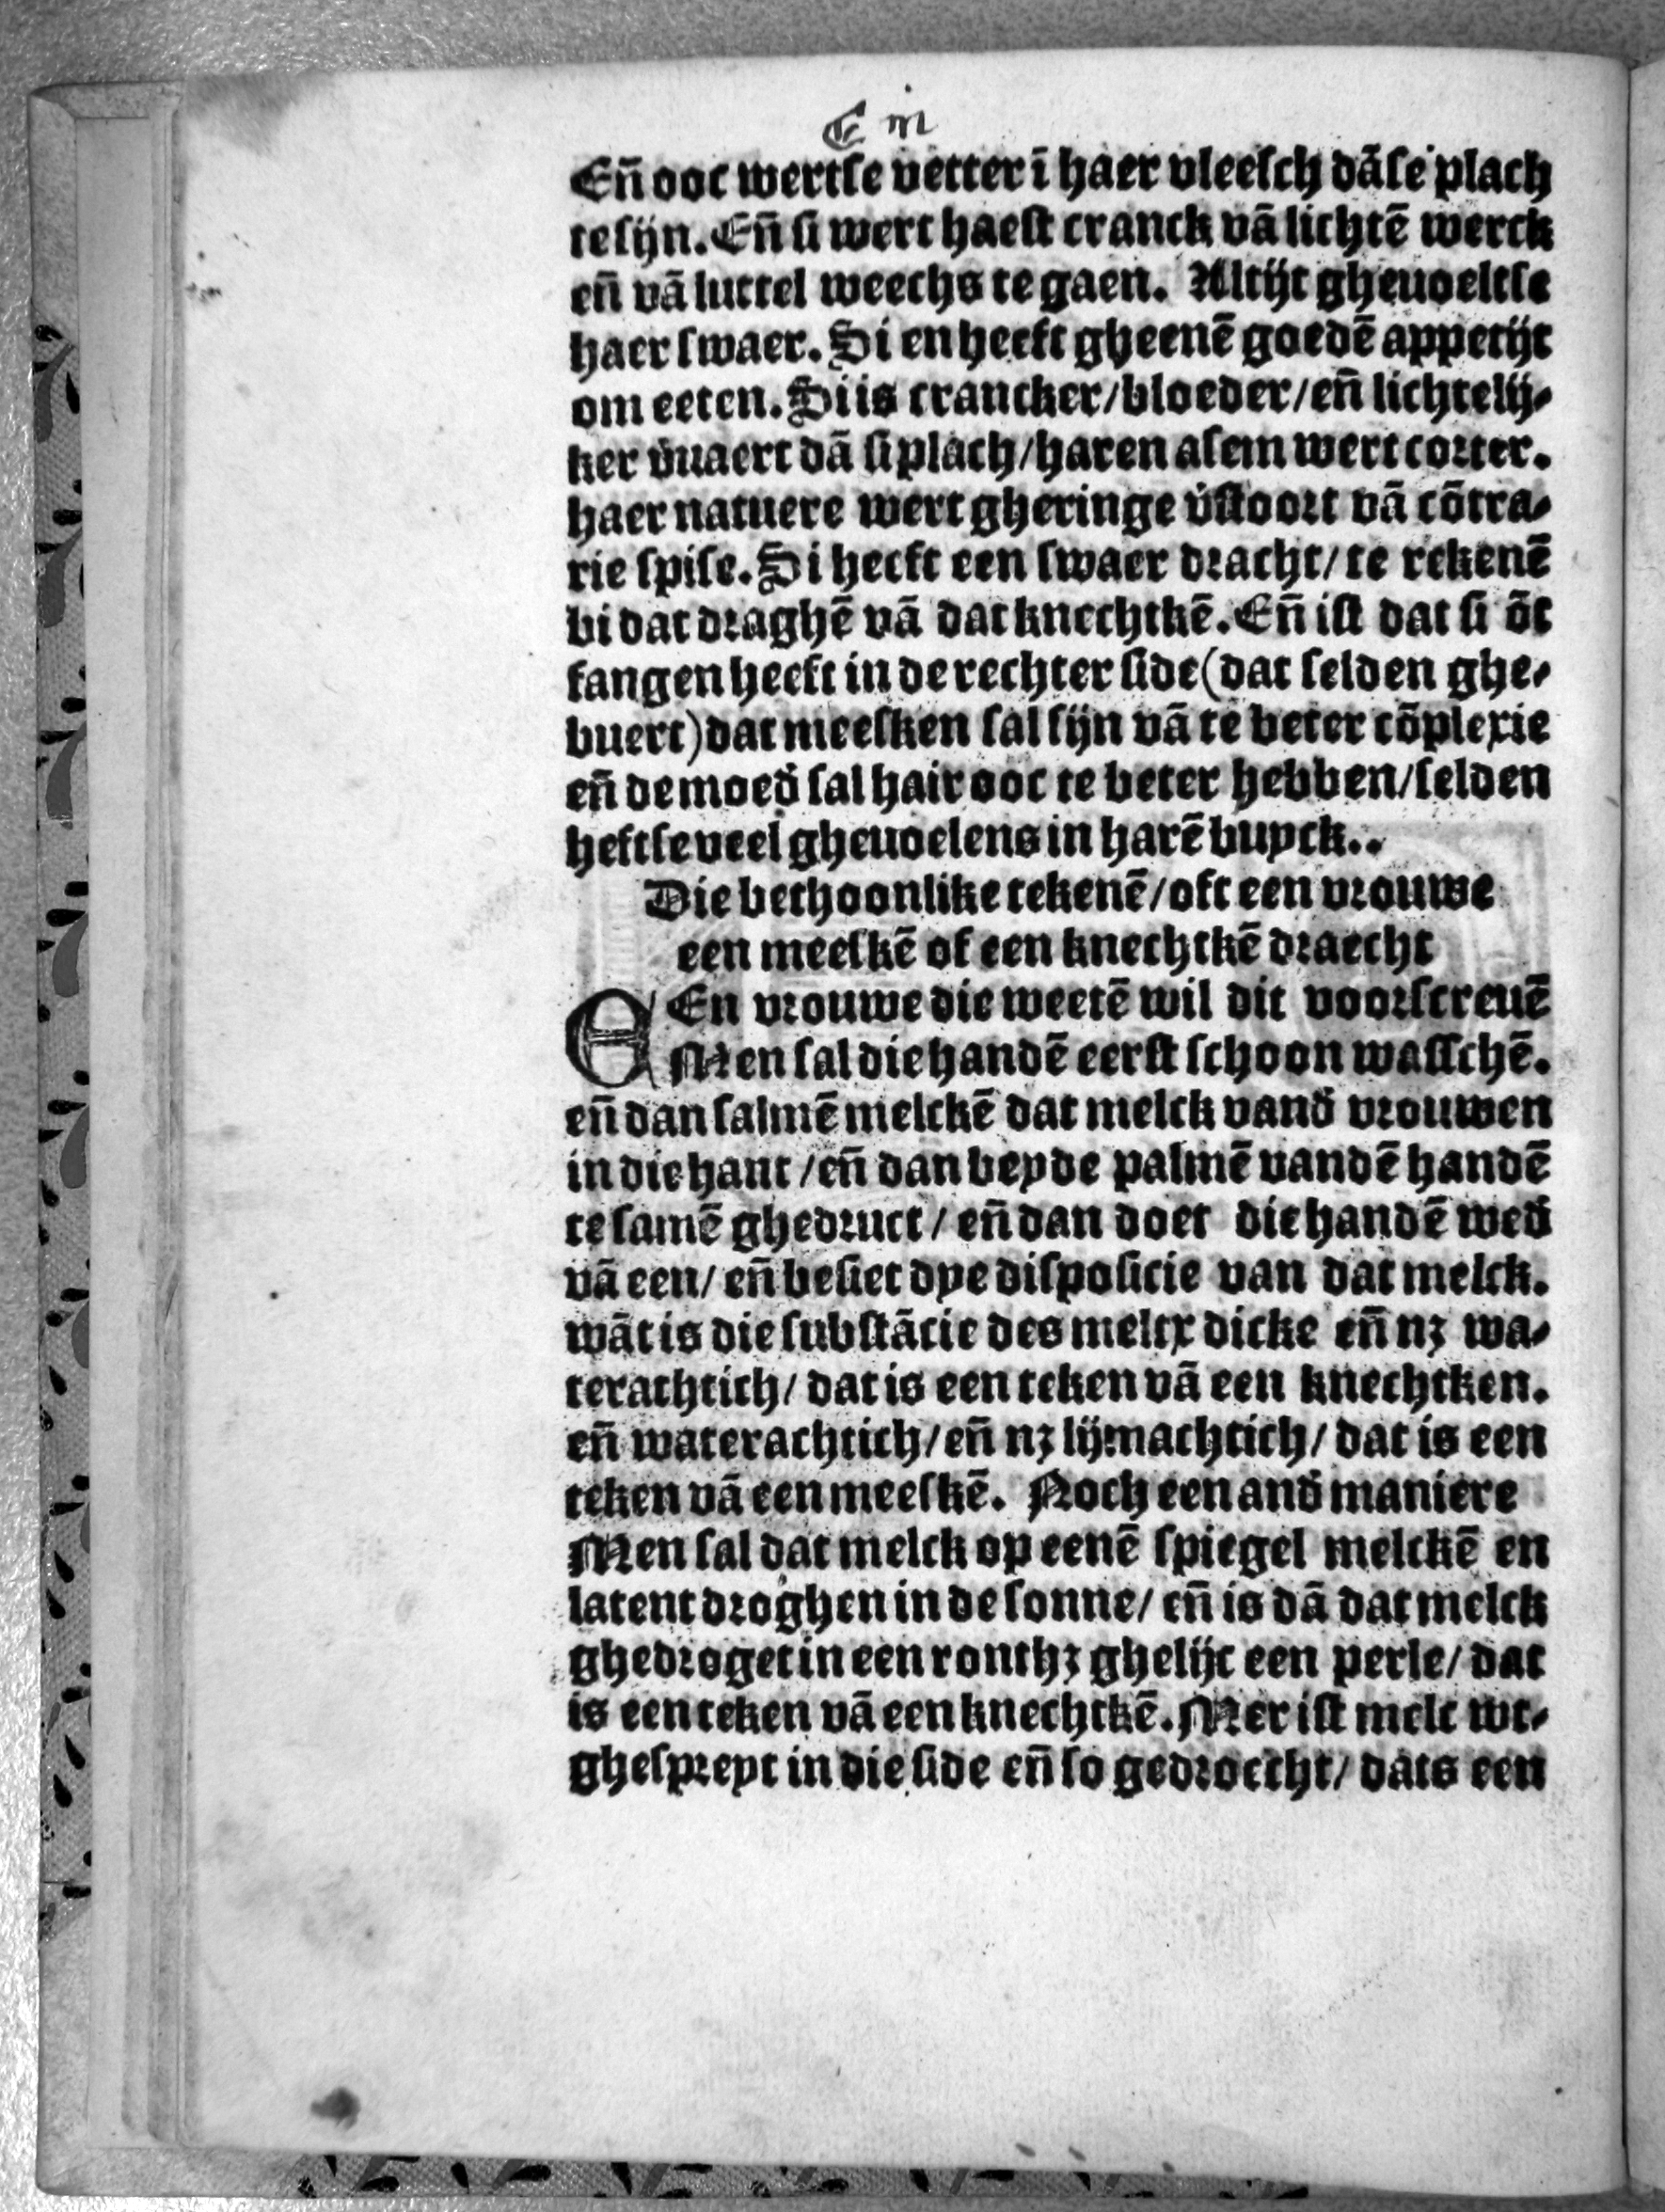 C m
En̄ ooc wertſe vetter ī haer vleeſch dāſe plach
te ſijn. En̄ ſi wert haeſt cranck vā lichtē werck
en̄ vā luttel weechs te gaen. Altijt gheuoeltſe
haer ſwaer. Si en heeft gheenē goedē appetijt
om eeten. Si is crancker/bloeder/en̄ lichtelij⸗
ker v̄uaert dā ſi plach/haren aſem wert corter.
haer natuere wert gheringe v̄ſtoort vā cōtra⸗
rie ſpiſe. Si heeft een ſwaer dracht/te rekenē
bi dat draghē vā dat knechtkē. En̄ iſt dat ſi ōt
fangen heeft in de rechter ſide (dat ſelden ghe⸗
buert) dat meeſken ſal ſijn vā te beter cōplexie
en̄ de moed̄ ſal hair ooc te beter hebben/ſelden
heftſe veel gheuoelens in harē buyck..
Die bethoonlike tekenē/oft een vrouwe
een meeſkē of een knechtkē draecht
EEn vrouwe die weetē wil dit voorſcreuē
Men ſal die handē eerſt ſchoon waſſchē.
en̄ dan ſalmē melckē dat melck vand̄ vrouwen
in die hant/en̄ dan beyde palmē vandē handē
te ſamē ghedruct/en̄ dan doet die handē wed̄
vā een/en̄ beſiet dye diſpoſicie van dat melck.
wāt is die ſubſtācie des melcx dicke en̄ nꝫ wa⸗
terachtich/dat is een teken vā een knechtken.
en̄ waterachtich/en̄ nꝫ lijmachtich/dat is een
teken vā een meeſkē. Noch een and̄ maniere
Men ſal dat melck op eenē ſpiegel melckē en
latent droghen in de ſonne/en̄ is dā dat melck
ghedroget in een ronthꝫ ghelijc een perle/dat
is een teken vā een knechtkē. Mer iſt melc wt⸗
gheſpreyt in die ſide en̄ ſo gedroecht/dats een